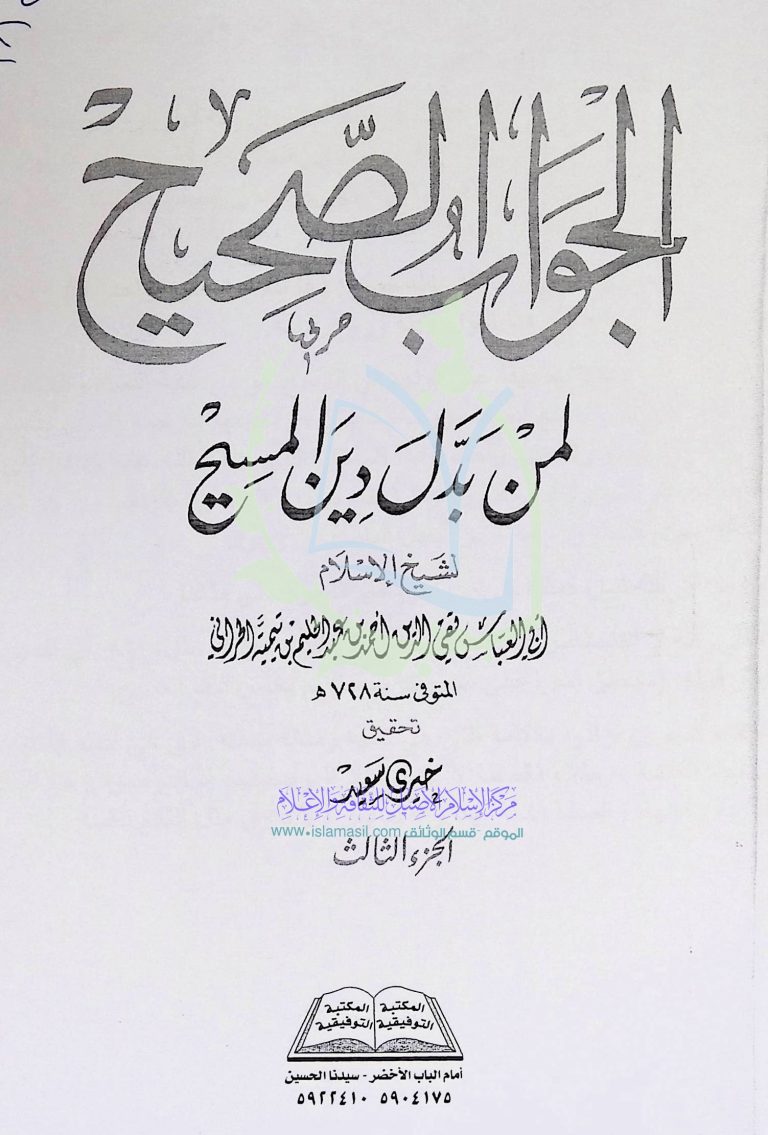 الجَوَابُ الصَّحِيحْ
لمَنْ بَدَّلَ دِينَ المَسِيحْ
لشَيخ الإسْلَام
أبي العَبَّاس تقي الدين أحمد بن عبد الحليم بن تيميَّة الحراني
المتوفى سنة ٧٢٨ هـ
تحقيق
خيري سَعيد
مركز الإسلام الأصيل للثقافة والإعلام
الموقع - قسم الوثائق www.islamasil.com
الجزء الثالث
المكتبة التوفيقية
المكتبة التوفيقية
أمام الباب الأخضر - سيدنا الحسين
٥٩٠٤١٧٥ ٥٩٢٢٤١٠